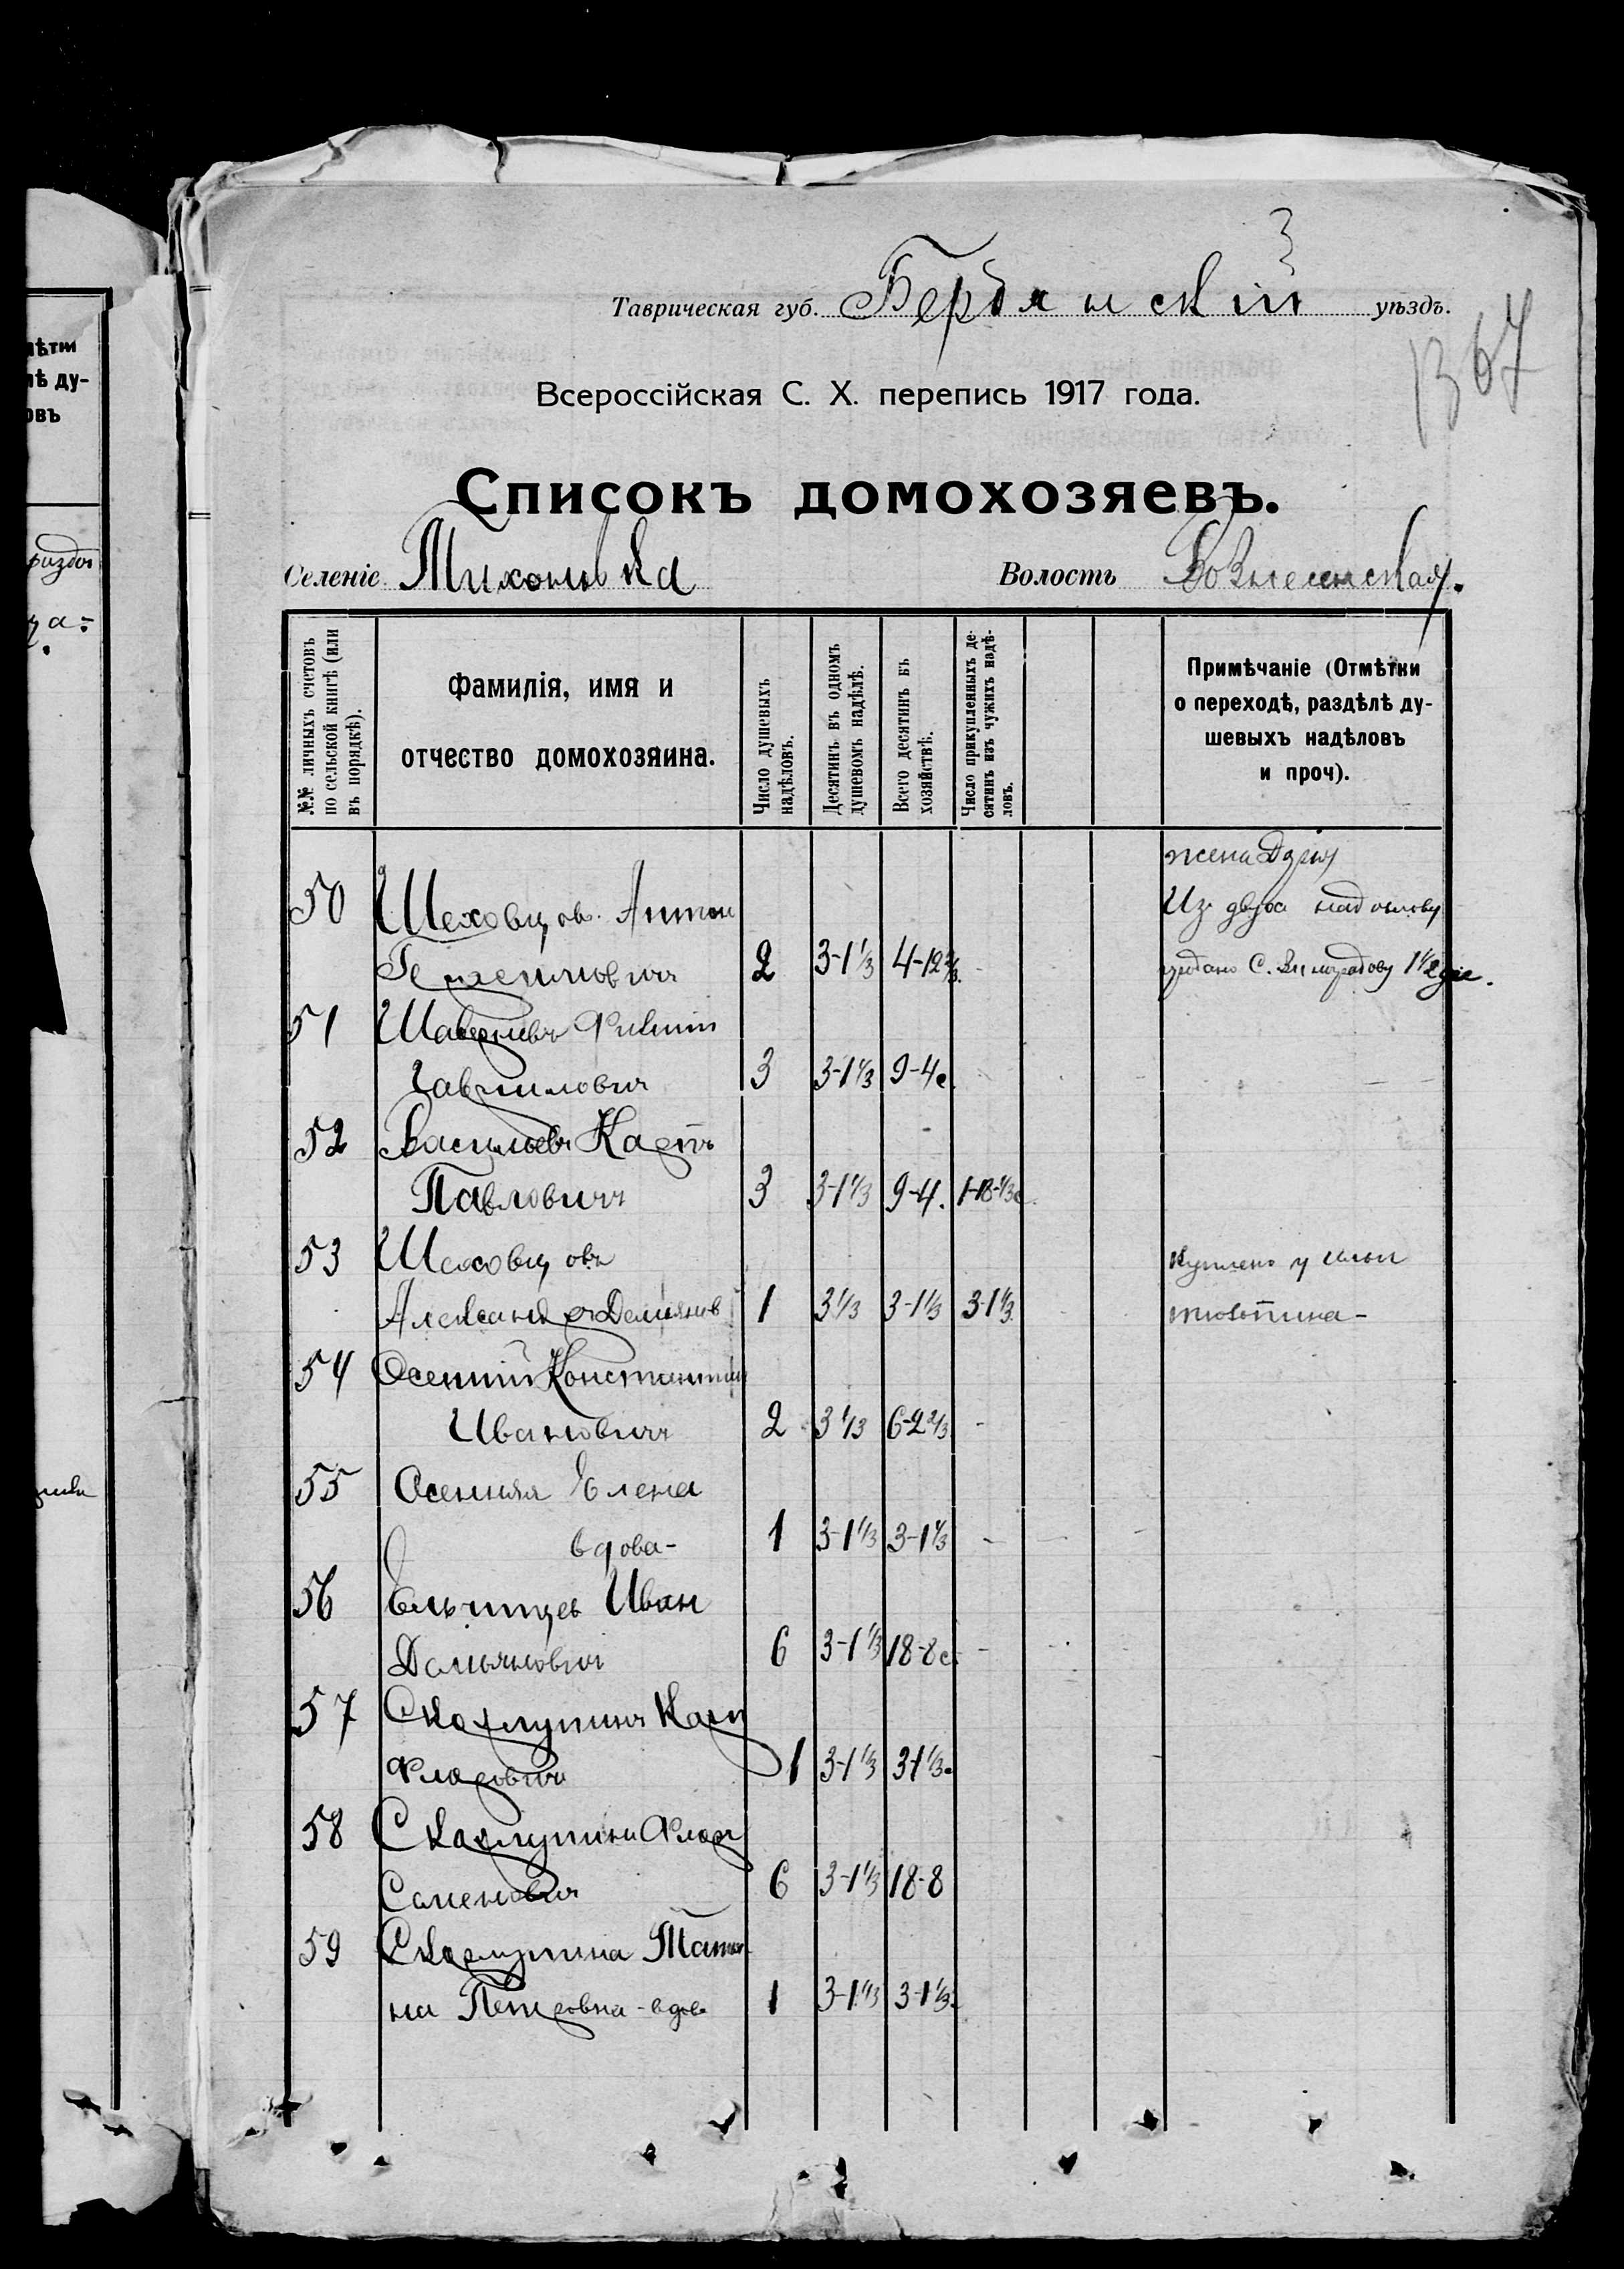 3
Таврическая губ. Бердянскій уѣздъ.
1367
Всероссійская С. Х. перепись 1917 года.
Списокъ домохозяевъ.
Селеніе Тихоновка Волость Вознесенская.
№№ личныхъ счетовъ по сельской книгѣ (или въ порядкѣ).
Фамилія, имя и отчество домохозяина.
Число душевыхъ надѣловъ.
Десятинъ въ одномъ душевомъ надѣлѣ.
Всего десятинъ въ хозяйствѣ.
Число прикупленныхъ десятинъ изъ чужихъ надѣловъ.
Примѣчаніе (Отмѣтки о переходѣ, раздѣлѣ душевыхъ надѣловъ и проч).
жена Дарья
50 Шеховцов. Антон Из двухъ надѣловъ
2 3-1⅓ 4-12⅔ продано С. Виноградову 1½ дес.
51 Филип
Гаврилович 3 3-1⅓ 9-4с.
52 Васильевъ Карпъ
Павловичъ 3 3-1⅓ 9-4. 1-18-⅓с.
53 Шеховцовъ Куплено у
Александръ Демьянов 1 3⅓ 3-1⅓ 3-1⅓
54 Осенній Константин
Ивановичъ 2 3⅓ 6-2⅔ -
55 Осенняя Елена
вдова- 1 3-1⅓ 3-1⅓ -
56 Ельчищев Иван
Демьянович 6 3-1⅓ 18-8с. -
57 Скахлупинъ Карп
Фларович 1 3-1⅓ 3-1⅓
58 Скахлупинъ Флор
Семенович 6 3-1⅓ 18-8
59 Скахлупина Татья
на Петровна - вдова 1 3-1⅓ 3-1⅓